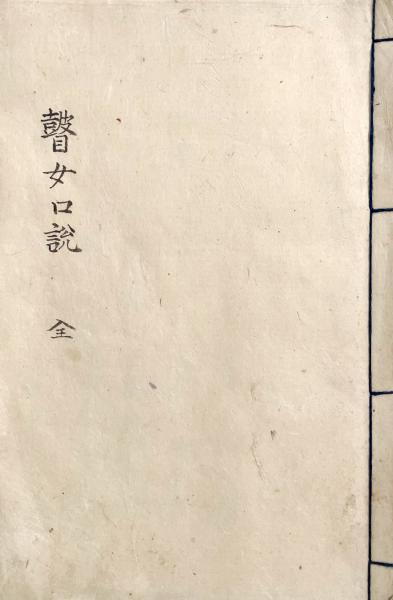 瞽女口説 全